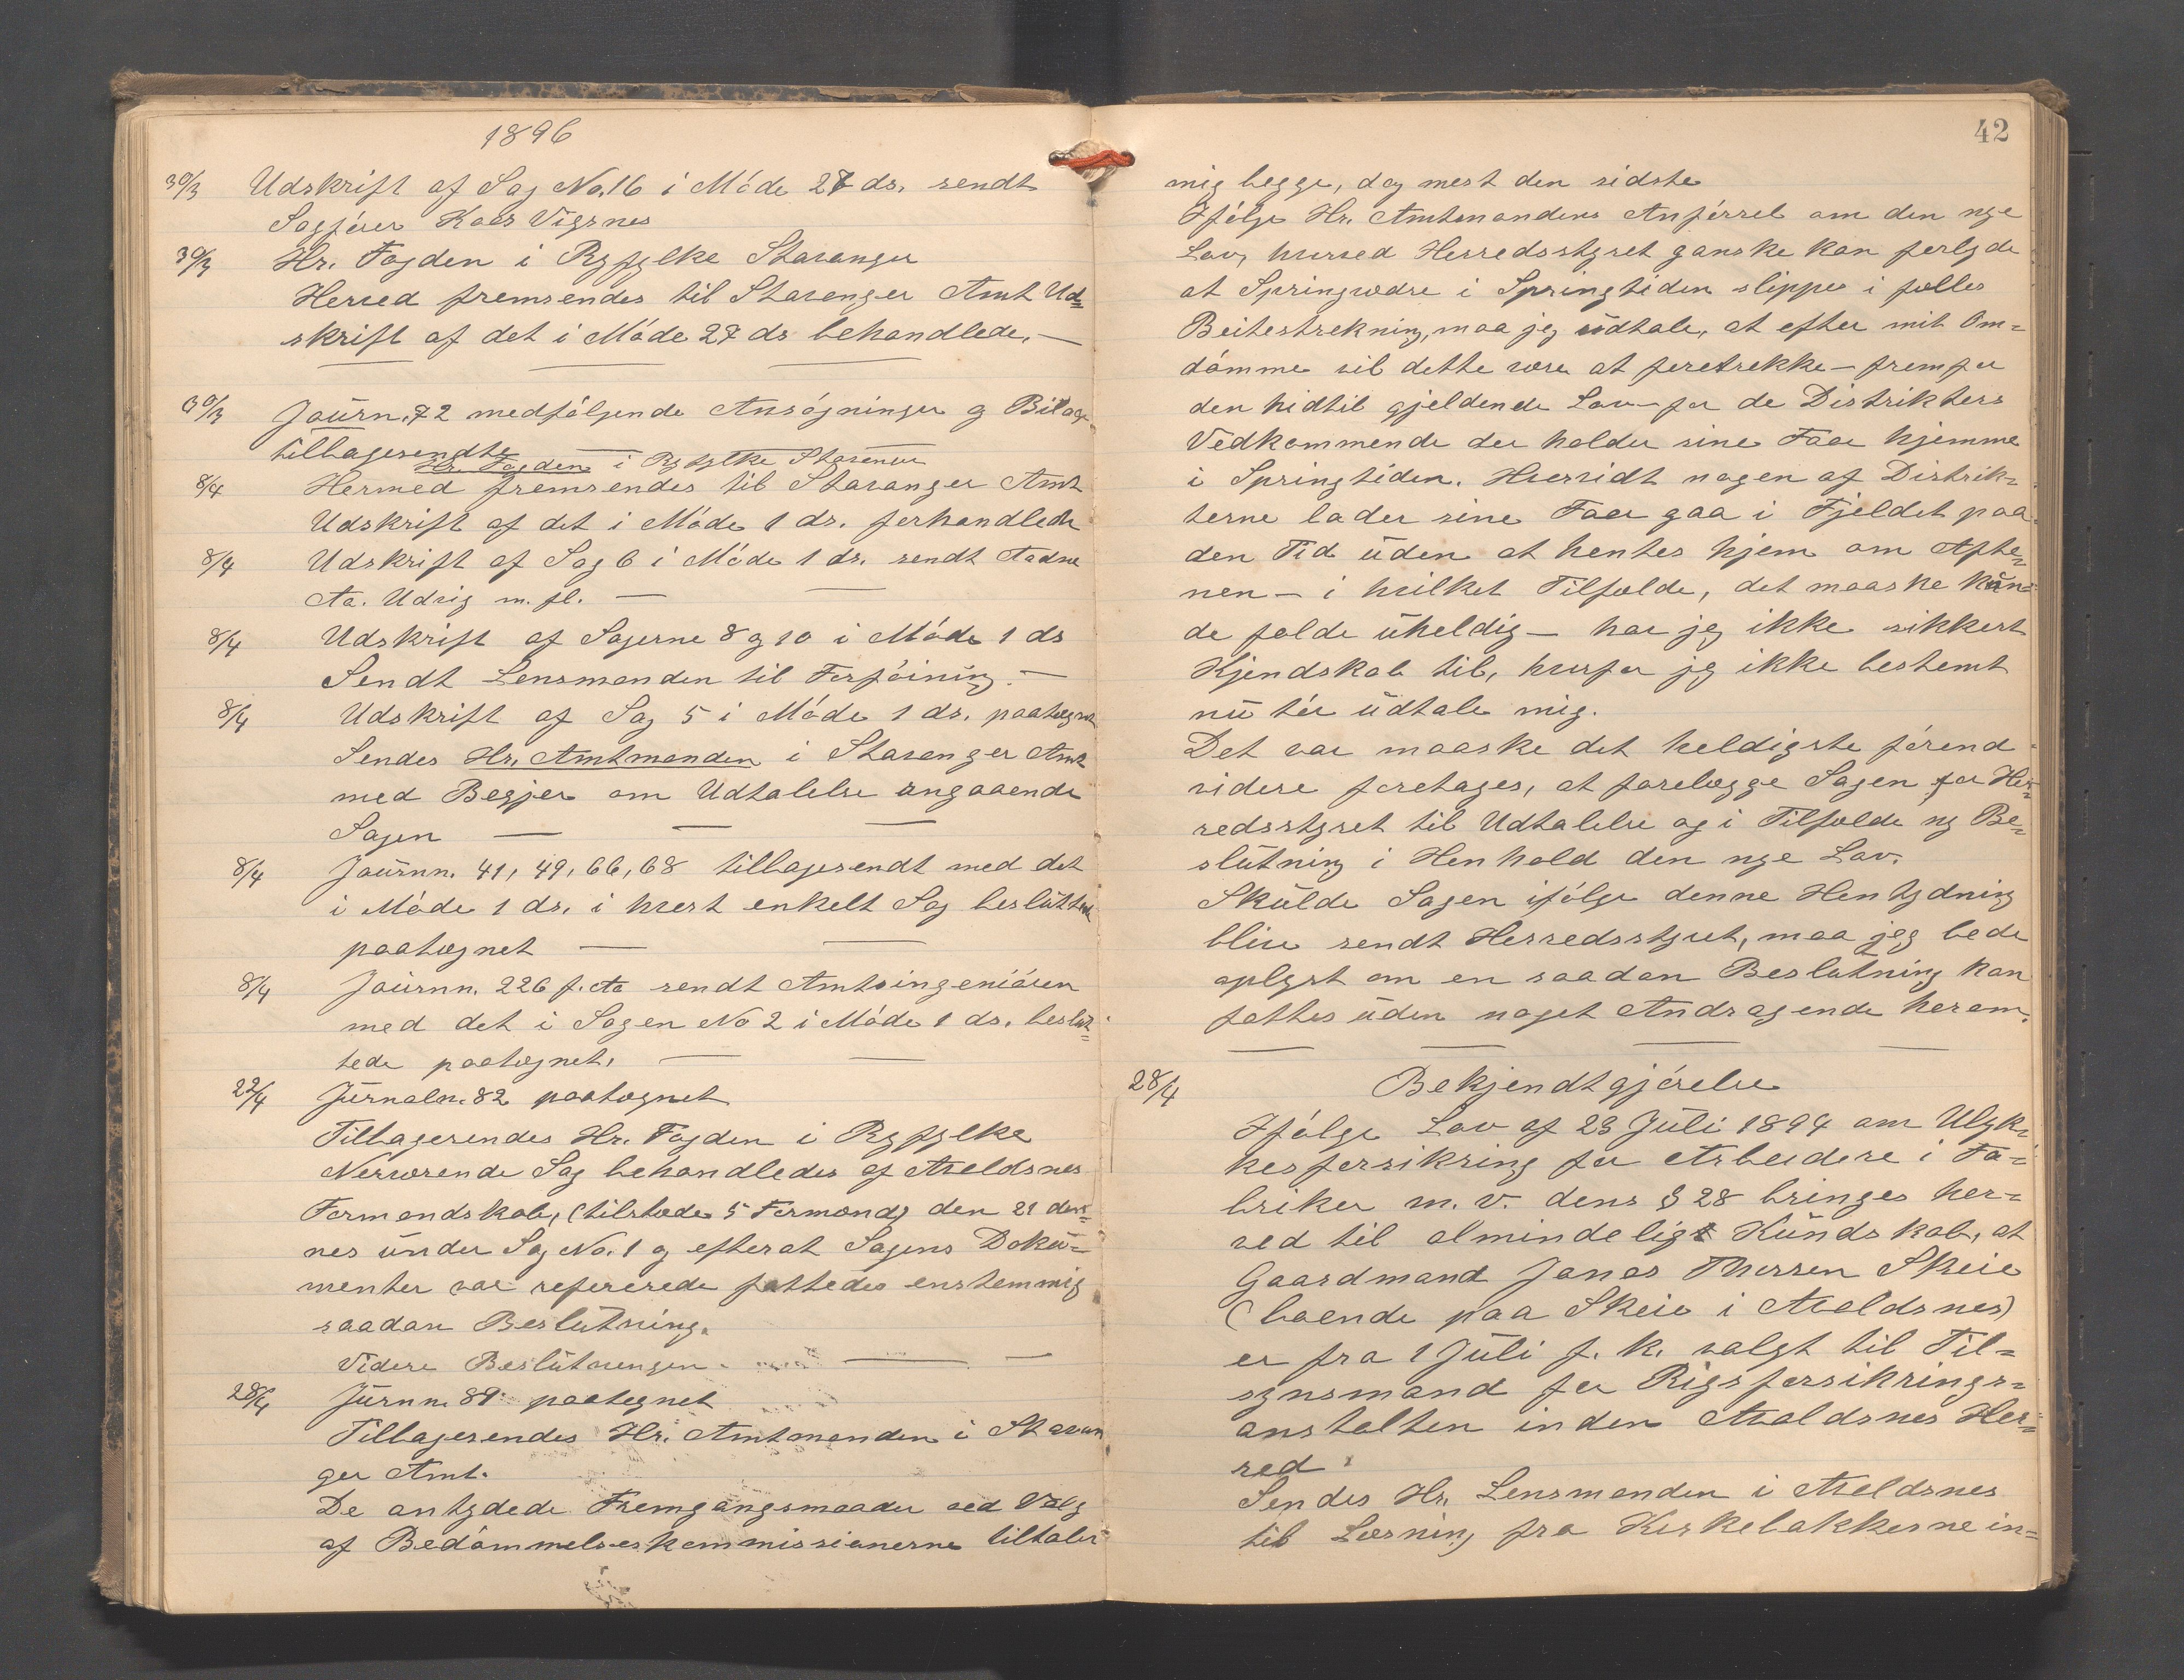 1896
30/3 Udskrift af Sag No. 16 i Møde 27 ds. sendt
Sagfører Koes Vigsnes
30/3 Hr. Fogden i Ryfylke Stavanger
Herved fremsendes til Stavanger Amt Ud=
skrift af det i Møde 27 ds behandlede. —
30/3 Journ. 72 medfølgende Ansøgninger og Bilage
tilbagesendte
Hr. Fogden i Ryfylke Stavanger
8/4 Hermed fremsendes til Stavanger Amt
Udskrift af det i Møde 1 ds. forhandlede
8/4 Udskrift af Sag 6 i Møde 1 ds. sendt Aadne
Aa. Udvig m. fl. —
8/4 Udskrift af Sagerne 8 og 10 i Møde 1 ds
Sendt Lensmanden til Forføining. —
8/4 Udskrift af Sag 5 i Møde 1 ds. paategnet
Sendes Hr. Amtmanden i Stavanger Amt
med Begjær om Udtalelse angaaende
Sagen —
8/4 Journn. 41, 49, 66, 68 tilbagesendt med det
i Møde 1 ds. i hvert enkelt Sag besluttede
paategnet —
8/4 Journn. 226 f. Aa sendt Amtsingeniøren
med det i Sagen No 2 i Møde 1 ds. beslut=
tede paategnet. —
22/4 Jurnaln. 82 paategnet
Tilbagesendes Hr. Fogden i Ryfylke
Nerværende Sag behandledes af Avaldsnes
Formandskab, (tilstede 5 Formænd) den 21 den=
nes under Sag No. 1 og efterat Sagens Doku=
menter var refererede fattedes enstemmig
saadan Beslutning.
Videre Beslutningen. —
28/4 Jurnn. 89 paategnet
Tilbagesendes Hr. Amtmanden i Stavan
ger Amt.
De antydede Fremgangsmaader ved Valg
af Bedømmelseskommissionerne tiltaler
42
mig begge, dog mest den sidste
Ifølge Hr. Amtmandens Anførsel om den nye
Lov, hvorved Herredsstyret ganske kan forbyde
at Springvædre i Springtiden slippes i fælles
Beitestrekning, maa jeg udtale, at efter mit Om=
dømme vil dette være at foretrekke — fremfor
den hidtil gjeldende Lov — for de Distrikters
Vedkommende der holder sine Faar hjemme
i Springtiden. Hvorvidt nogen af Distrik=
terne lader sine Faar gaa i Fjeldet paa
den Tid uden at hentes hjem om Afte=
nen — i hvilket Tilfælde, det maaske kun=
de falde uheldig — har jeg ikke sikkert
Kjendskab til, hvorfor jeg ikke bestemt
nu tør udtale mig.
Det var maaske det heldigste førend
videre foretages, at forelægge Sagen for Her=
redsstyret til Udtalelse og i Tilfælde ny Be=
slutning i Henhold den nye Lov.
Skulde Sagen ifølge denne Hentydning
blive sendt Herredsstyret, maa jeg bede
oplyst om en saadan Beslutning kan
fattes uden noget Andragende herom.
28/4 Bekjendtgjørelse
Ifølge Lov af 23 Juli 1894 om Ulyk=
kesforsikring for Arbeidere i Fa=
briker m. v. dens § 28 bringes her=
ved til almindeligt Kundskab, at
Gaardmand Jonas Thorsen Skeie
(boende paa Skeie i Avaldsnes)
er fra 1 Juli f. k. valgt til Til=
synsmand for Rigsforsikrings=
anstalten inden Avaldsnes Her=
red.
Sendes Hr. Lensmanden i Avaldsnes
til Læsning fra Kirkebakkerne in=